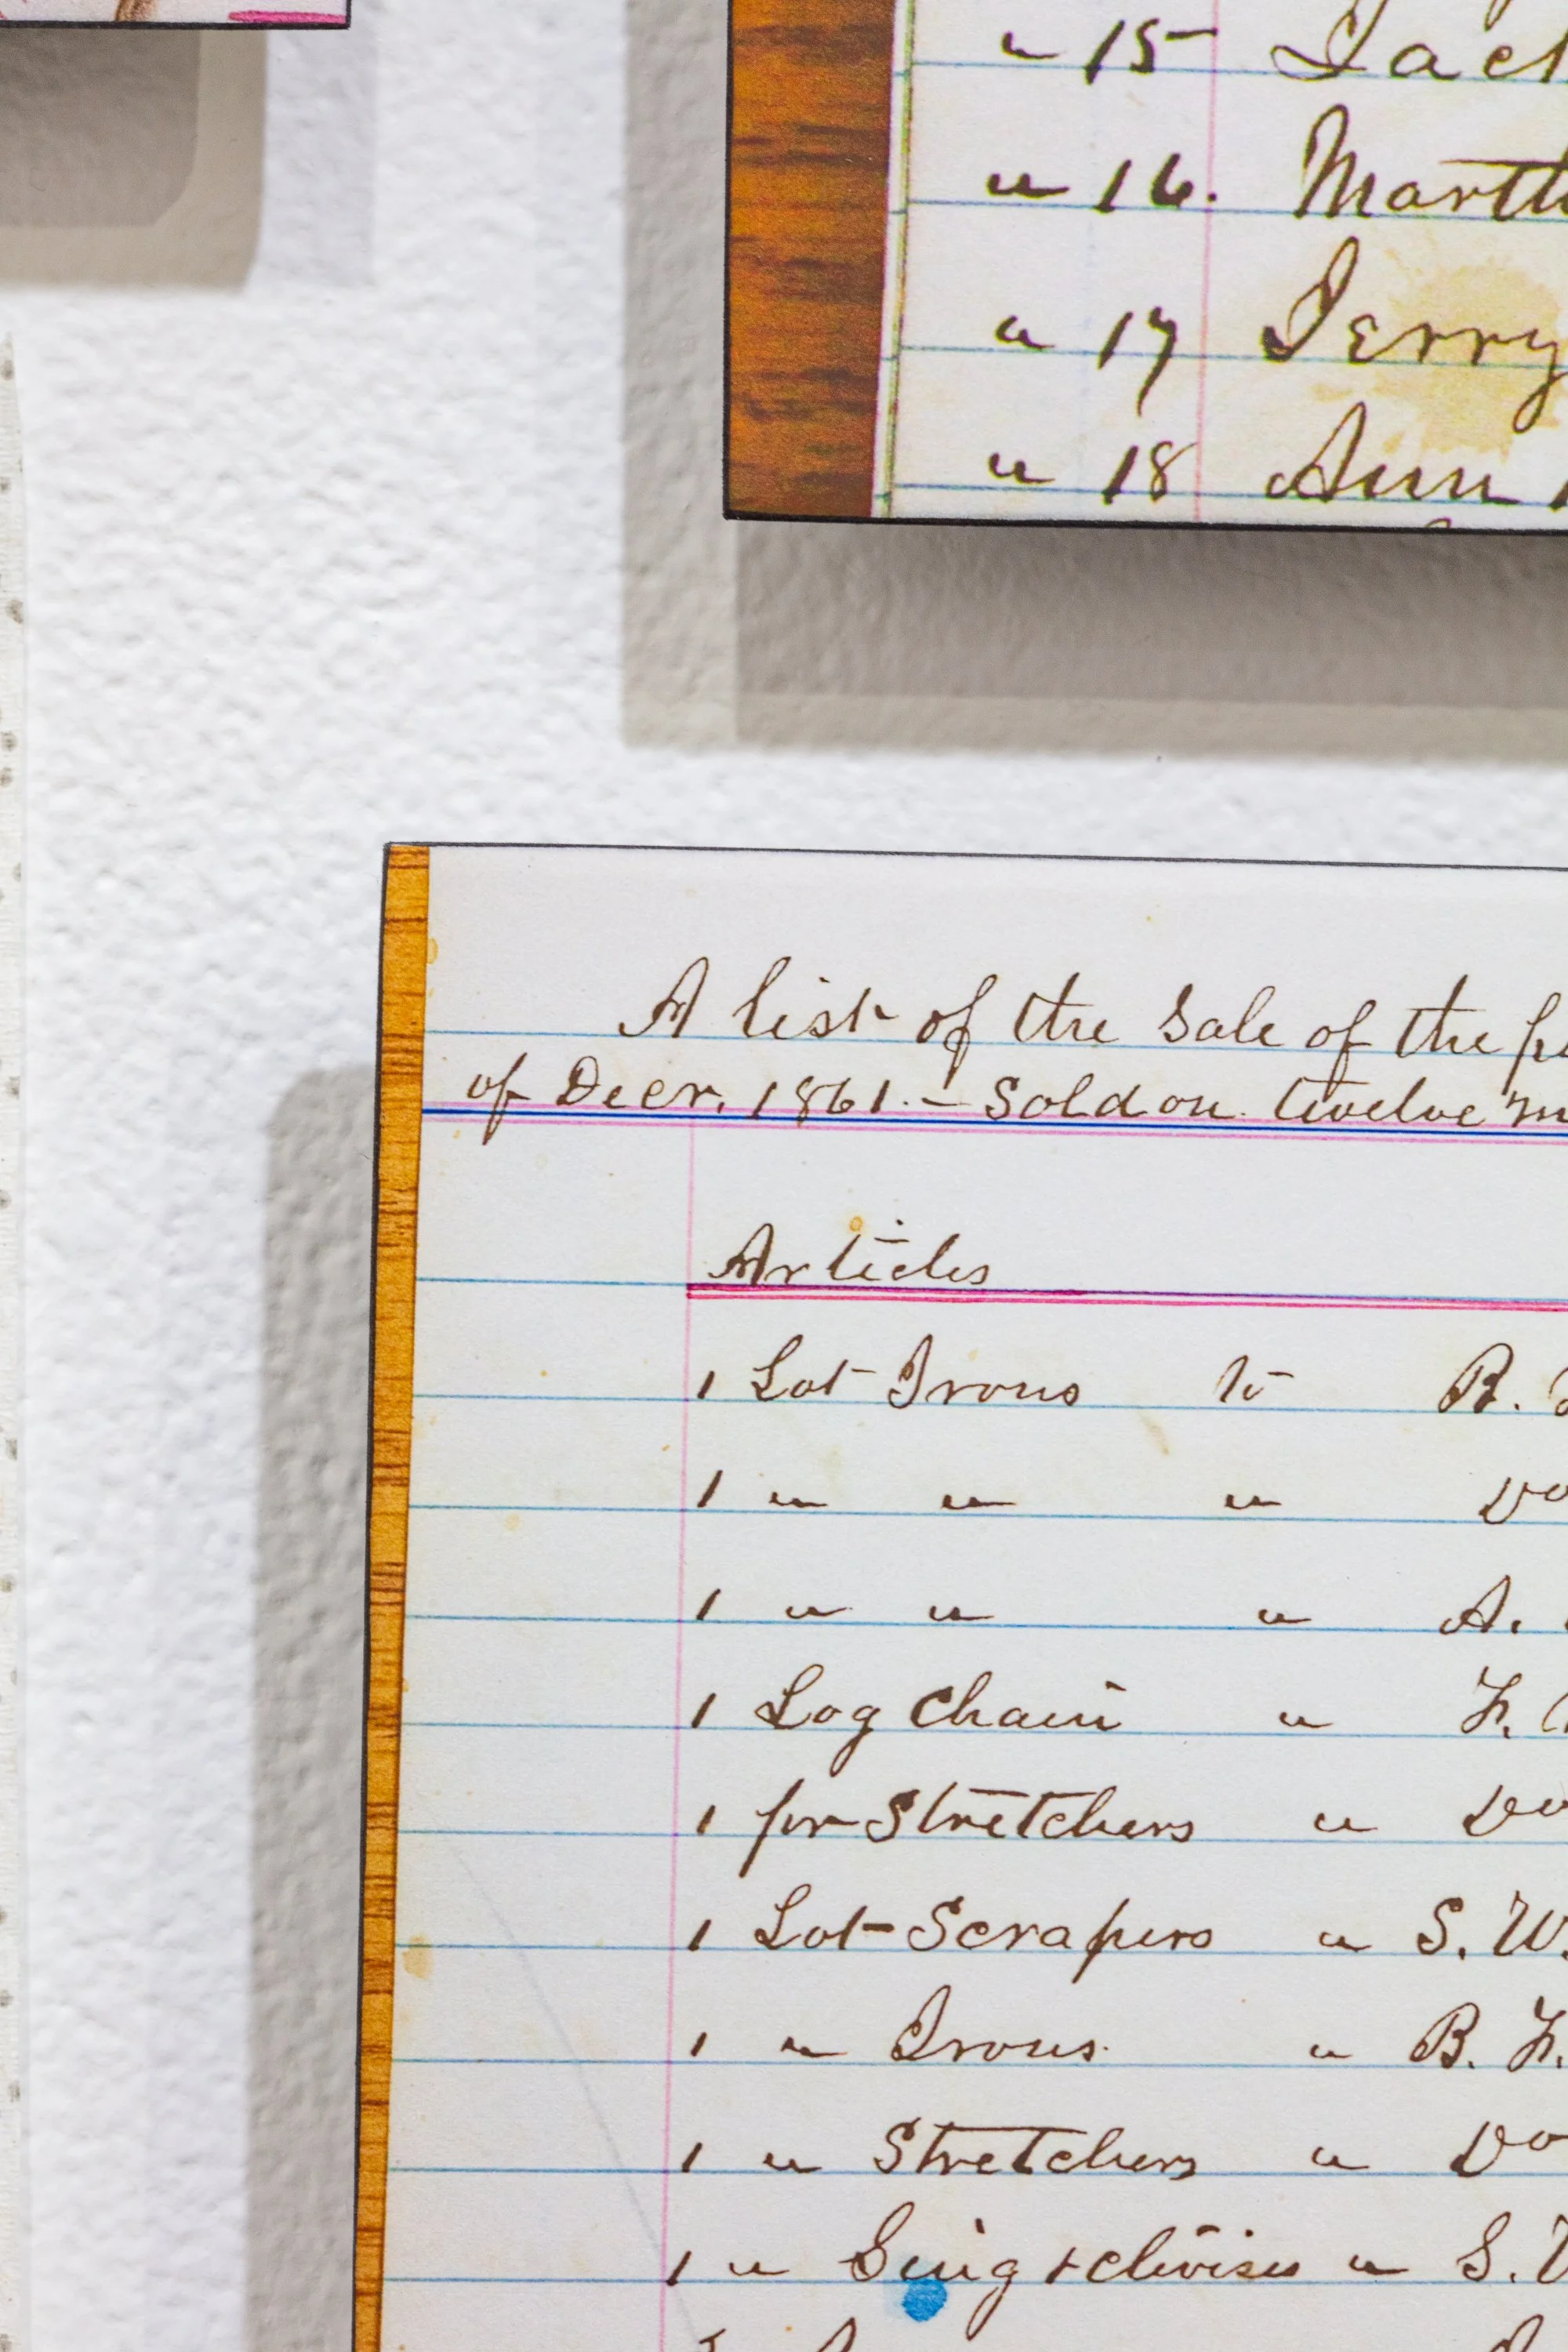 " 15 Jack
" 16. Marth
" 17 Jerry
" 18 Ann
A list of the sale of the pe
of Decr. 1861. – Sold on twelve m
Articles
1 Lot Irons to R.
1 " " " Do
1 " " " A.
1 Log Chain " F.
1 pr Stretchers " Do
1 Lot Scrapers " S. W.
1 " Irons " B. F.
1 " Stretchers " Do
1 " & clivises " S.